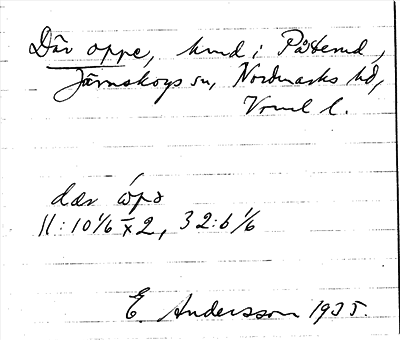 Där oppe, hmd i Påterud,
Järnskogs sn, Nordmarks hd,
Vrml l.
dær ópə
11:10 1/6 x 2, 32:6 1/6
E. Andersson 1935.